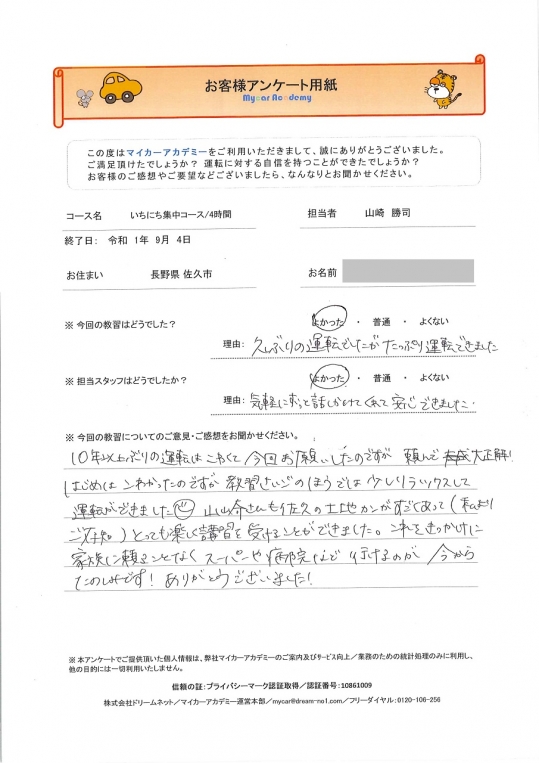 お客様アンケート用紙
Mycar Academy
この度はマイカーアカデミーをご利用いただきまして、誠にありがとうございました。
ご満足頂けたでしょうか? 運転に対する自信を持つことができたでしょうか?
お客様のご感想やご要望などございましたら、なんなりとお聞かせください。
コース名 いちにち集中コース/4時間 担当者 山崎 勝司
終了日: 令和 1年 9月 4日
お住まい 長野県 佐久市 お名前
※ 今回の教習はどうでした? よかった ・ 普通 ・ よくない
理由: 久しぶりの運転でしたがたっぷり運転できました
※ 担当スタッフはどうでしたか? よかった ・ 普通 ・ よくない
理由: 気軽にずっと話しかけてくれて安心できました
※ 今回の教習についてのご意見・ご感想をお聞かせください。
10年以上ぶりの運転はこわくて今回お願いしたのですが 頼んで大正解!
はじめはこわかったのですが教習さいごのほうでは少しリラックスして
運転ができました 山崎さんも佐久の土地カンがすごくあって(私より
ご存知)とっても楽しく講習を受けることができました。これをきっかけに
家族に頼ることなくスーパーや病院など行けるのが 今から
たのしみです! ありがとうございました!
※ 本アンケートでご提供頂いた個人情報は、弊社マイカーアカデミーのご案内及びサービス向上/業務のための統計処理のみに利用し、
他の目的には一切利用いたしません。
信頼の証:プライバシーマーク認証取得/認証番号:10861009
株式会社ドリームネット/マイカーアカデミー運営本部/mycar@dream-no1.com/フリーダイヤル:0120-106-256